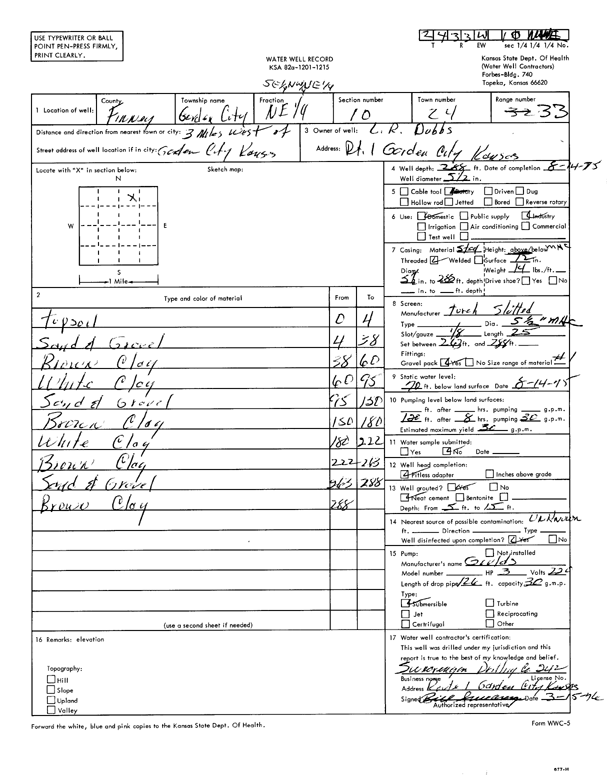 USE TYPEWRITER OR BALL
POINT PEN-PRESS FIRMLY,
PRINT CLEARLY.
2 4 3 3 W 10
T R EW sec 1/4 1/4 1/4 No.
WATER WELL RECORD
KSA 82a-1201-1215
Kansas State Dept. Of Health
(Water Well Contractors)
Forbes-Bldg. 740
Topeka, Kansas 66620
1 Location of well: County Finney Township name Garden City Fraction NE 1/4 Section number 10 Town number 24 Range number 32 33
Distance and direction from nearest town or city: 3 Miles West of
Street address of well location if in city: Garden City Kansas
3 Owner of well: L.R. Dubbs
Address: Rt. 1 Garden City Kansas
Locate with "X" in section below: Sketch map:
N
X
W E
S
1 Mile
2 Type and color of material From To
Topsoil 0 4
Sand & Gravel 4 38
Brown Clay 38 60
White Clay 60 95
Sand & Gravel 95 130
Brown Clay 130 180
White Clay 180 222
Brown Clay 222 263
Sand & Gravel 263 288
Brown Clay 288
(use a second sheet if needed)
16 Remarks: elevation
Topography:
Hill
Slope
Upland
Valley
4 Well depth: 288 ft. Date of completion 8-14-75
Well diameter 5 1/2 in.
5 Cable tool Rotary Driven Dug
Hollow rod Jetted Bored Reverse rotary
6 Use: Domestic Public supply Industry
Irrigation Air conditioning Commercial
Test well
7 Casing: Material Height: above/below
Threaded Welded Surface 12 in.
Diam. Weight 14 lbs./ft.
in. to 288 ft. depth Drive shoe? Yes No
in. to ft. depth
8 Screen:
Manufacturer Torch Slotted
Type Dia. 5 1/2"
Slot/gauze 1/8 Length 25
Set between 263 ft. and 288 ft.
Fittings:
Gravel pack Yes No Size range of material #1
9 Static water level:
70 ft. below land surface Date 8-14-75
10 Pumping level below land surfaces:
ft. after hrs. pumping g.p.m.
120 ft. after 8 hrs. pumping 30 g.p.m.
Estimated maximum yield 30 g.p.m.
11 Water sample submitted:
Yes No Date
12 Well head completion:
Pitless adapter Inches above grade
13 Well grouted? Yes No
Neat cement Bentonite
Depth: From 5 ft. to 15 ft.
14 Nearest source of possible contamination: Unknown
ft. Direction Type
Well disinfected upon completion? Yes No
15 Pump: Not installed
Manufacturer's name Goulds
Model number HP 3 Volts 220
Length of drop pipe 126 ft. capacity 30 g.m.p.
Type:
Submersible Turbine
Jet Reciprocating
Certrifugal Other
17 Water well contractor's certification:
This well was drilled under my jurisdiction and this
report is true to the best of my knowledge and belief.
Drilling Co 242
Business name License No.
Address Route 1 Garden City Kansas
Signed Date 3-15-76
Authorized representative
Forward the white, blue and pink copies to the Kansas State Dept. Of Health.
Form WWC-5